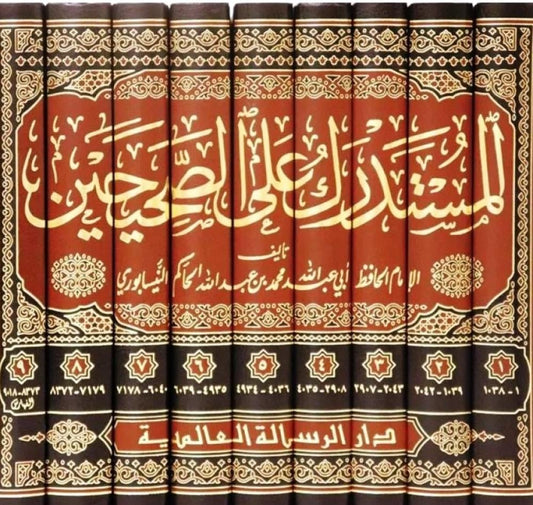 المستدرك على الصحيحين
تأليف
الإمام الحافظ أبي عبد الله محمد بن عبد الله الحاكم النيسابوري
١ ٢ ٣ ٤ ٥ ٦ ٧ ٨ ٩
١-١٠٣٨ ١٠٣٩-٢٠٤٢ ٢٠٤٣-٢٩٠٧ ٢٩٠٨-٤٠٣٥ ٤٠٣٦-٤٩٣٤ ٤٩٣٥-٦٠٣٩ ٦٠٤٠-٧١٧٨ ٧١٧٩-٨٣٧٢ ٨٣٧٣-٩٠١٨
الفهارس
دار الرسالة العالمية